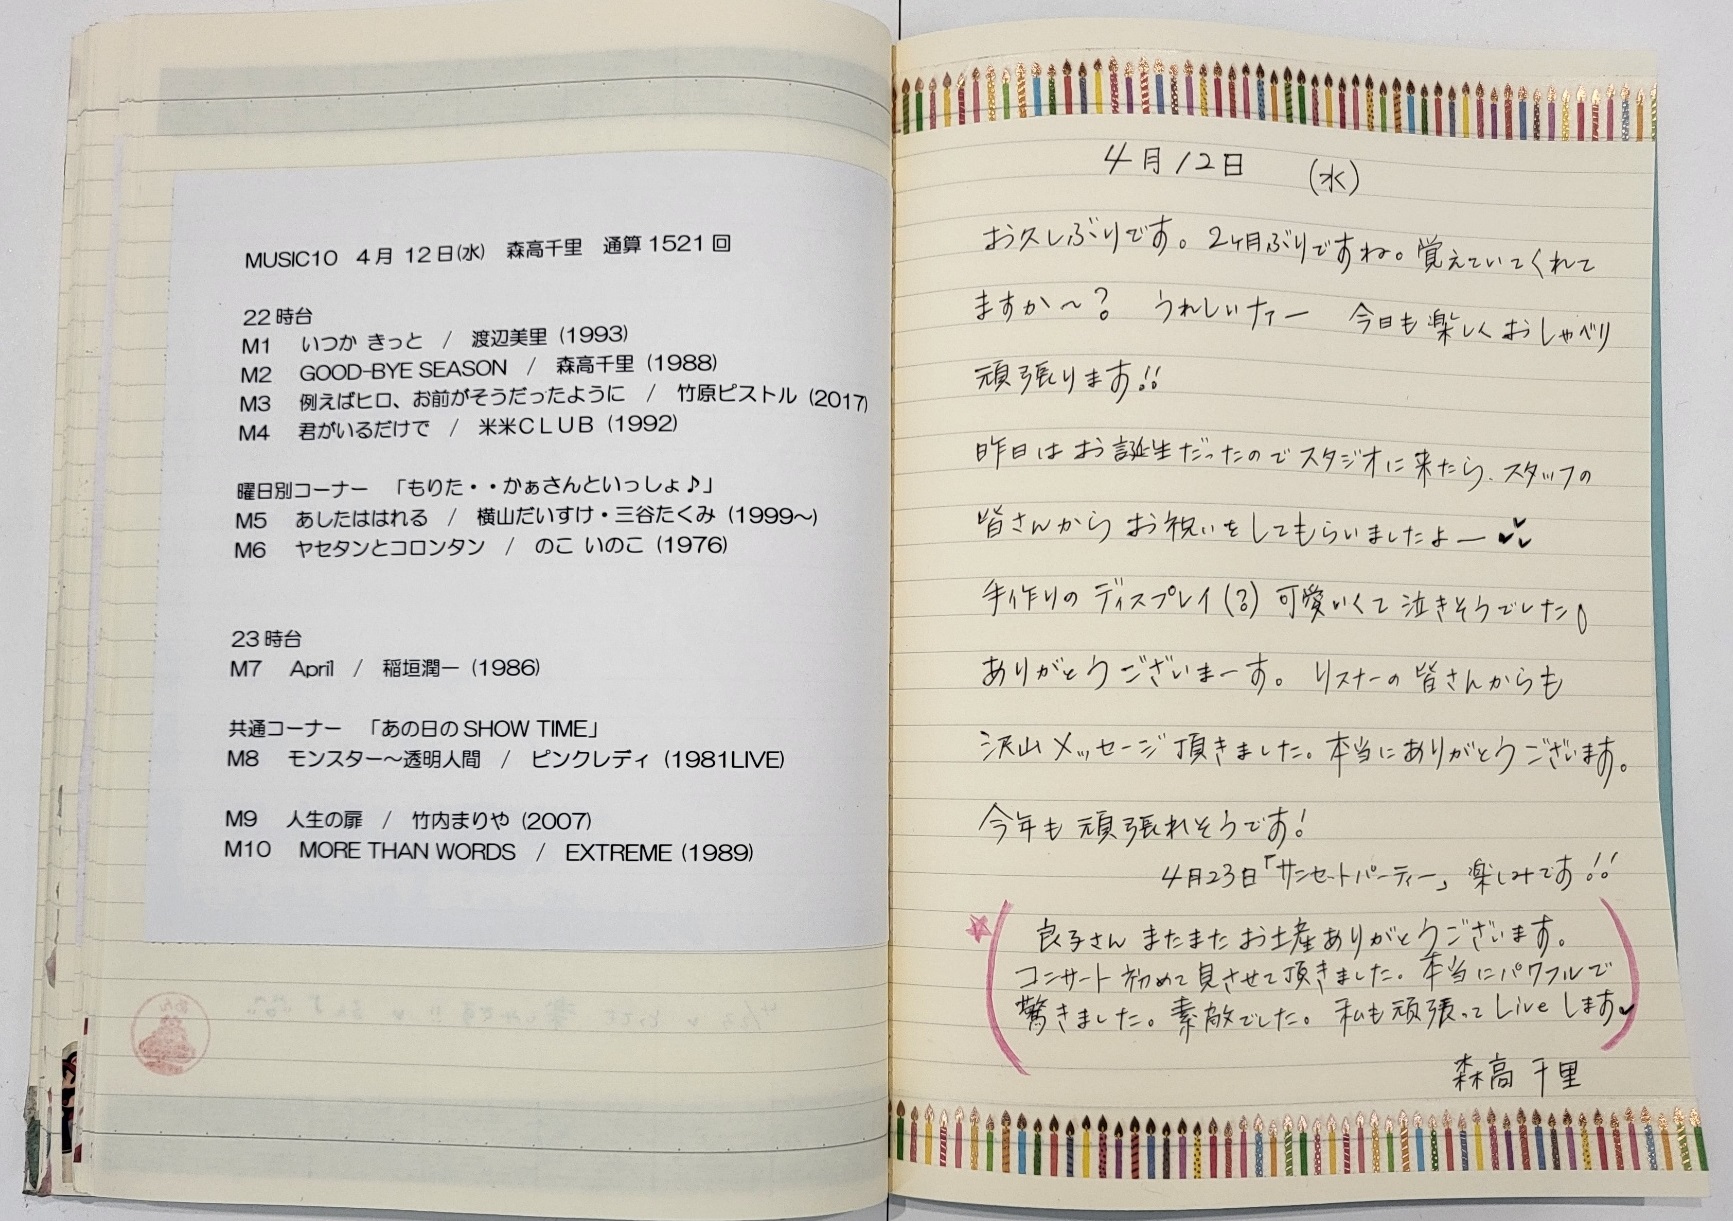 MUSIC10 4月 12日(水) 森高千里 通算1521回
22時台
M1 いつか きっと / 渡辺美里 (1993)
M2 GOOD-BYE SEASON / 森高千里 (1988)
M3 例えばヒロ、お前がそうだったように / 竹原ピストル (2017)
M4 君がいるだけで / 米米CLUB (1992)
曜日別コーナー 「もりた・・かぁさんといっしょ♪」
M5 あしたははれる / 横山だいすけ・三谷たくみ (1999〜)
M6 ヤセタンとコロンタン / のこ いのこ (1976)
23時台
M7 April / 稲垣潤一 (1986)
共通コーナー 「あの日のSHOW TIME」
M8 モンスター〜透明人間 / ピンクレディ (1981LIVE)
M9 人生の扉 / 竹内まりや (2007)
M10 MORE THAN WORDS / EXTREME (1989)
4月12日 (水)
お久しぶりです。2ヶ月ぶりですね。覚えていてくれて
ますか〜? うれしいナァー 今日も楽しくおしゃべり
頑張ります!!
昨日はお誕生だったのでスタジオに来たら、スタッフの
皆さんから お祝いをしてもらいましたよー
手作りの ディスプレイ(?) 可愛いくて泣きそうでした
ありがとうございまーす。 リスナーの皆さんからも
沢山メッセージ頂きました。本当にありがとうございます。
今年も頑張れそうです!
4月23日「サンセットパーティー」楽しみです!!
良子さん またまた お土産ありがとうございます。
コンサート初めて見させて頂きました。本当にパワフルで
驚きました。素敵でした。私も頑張ってLiveします
森高千里